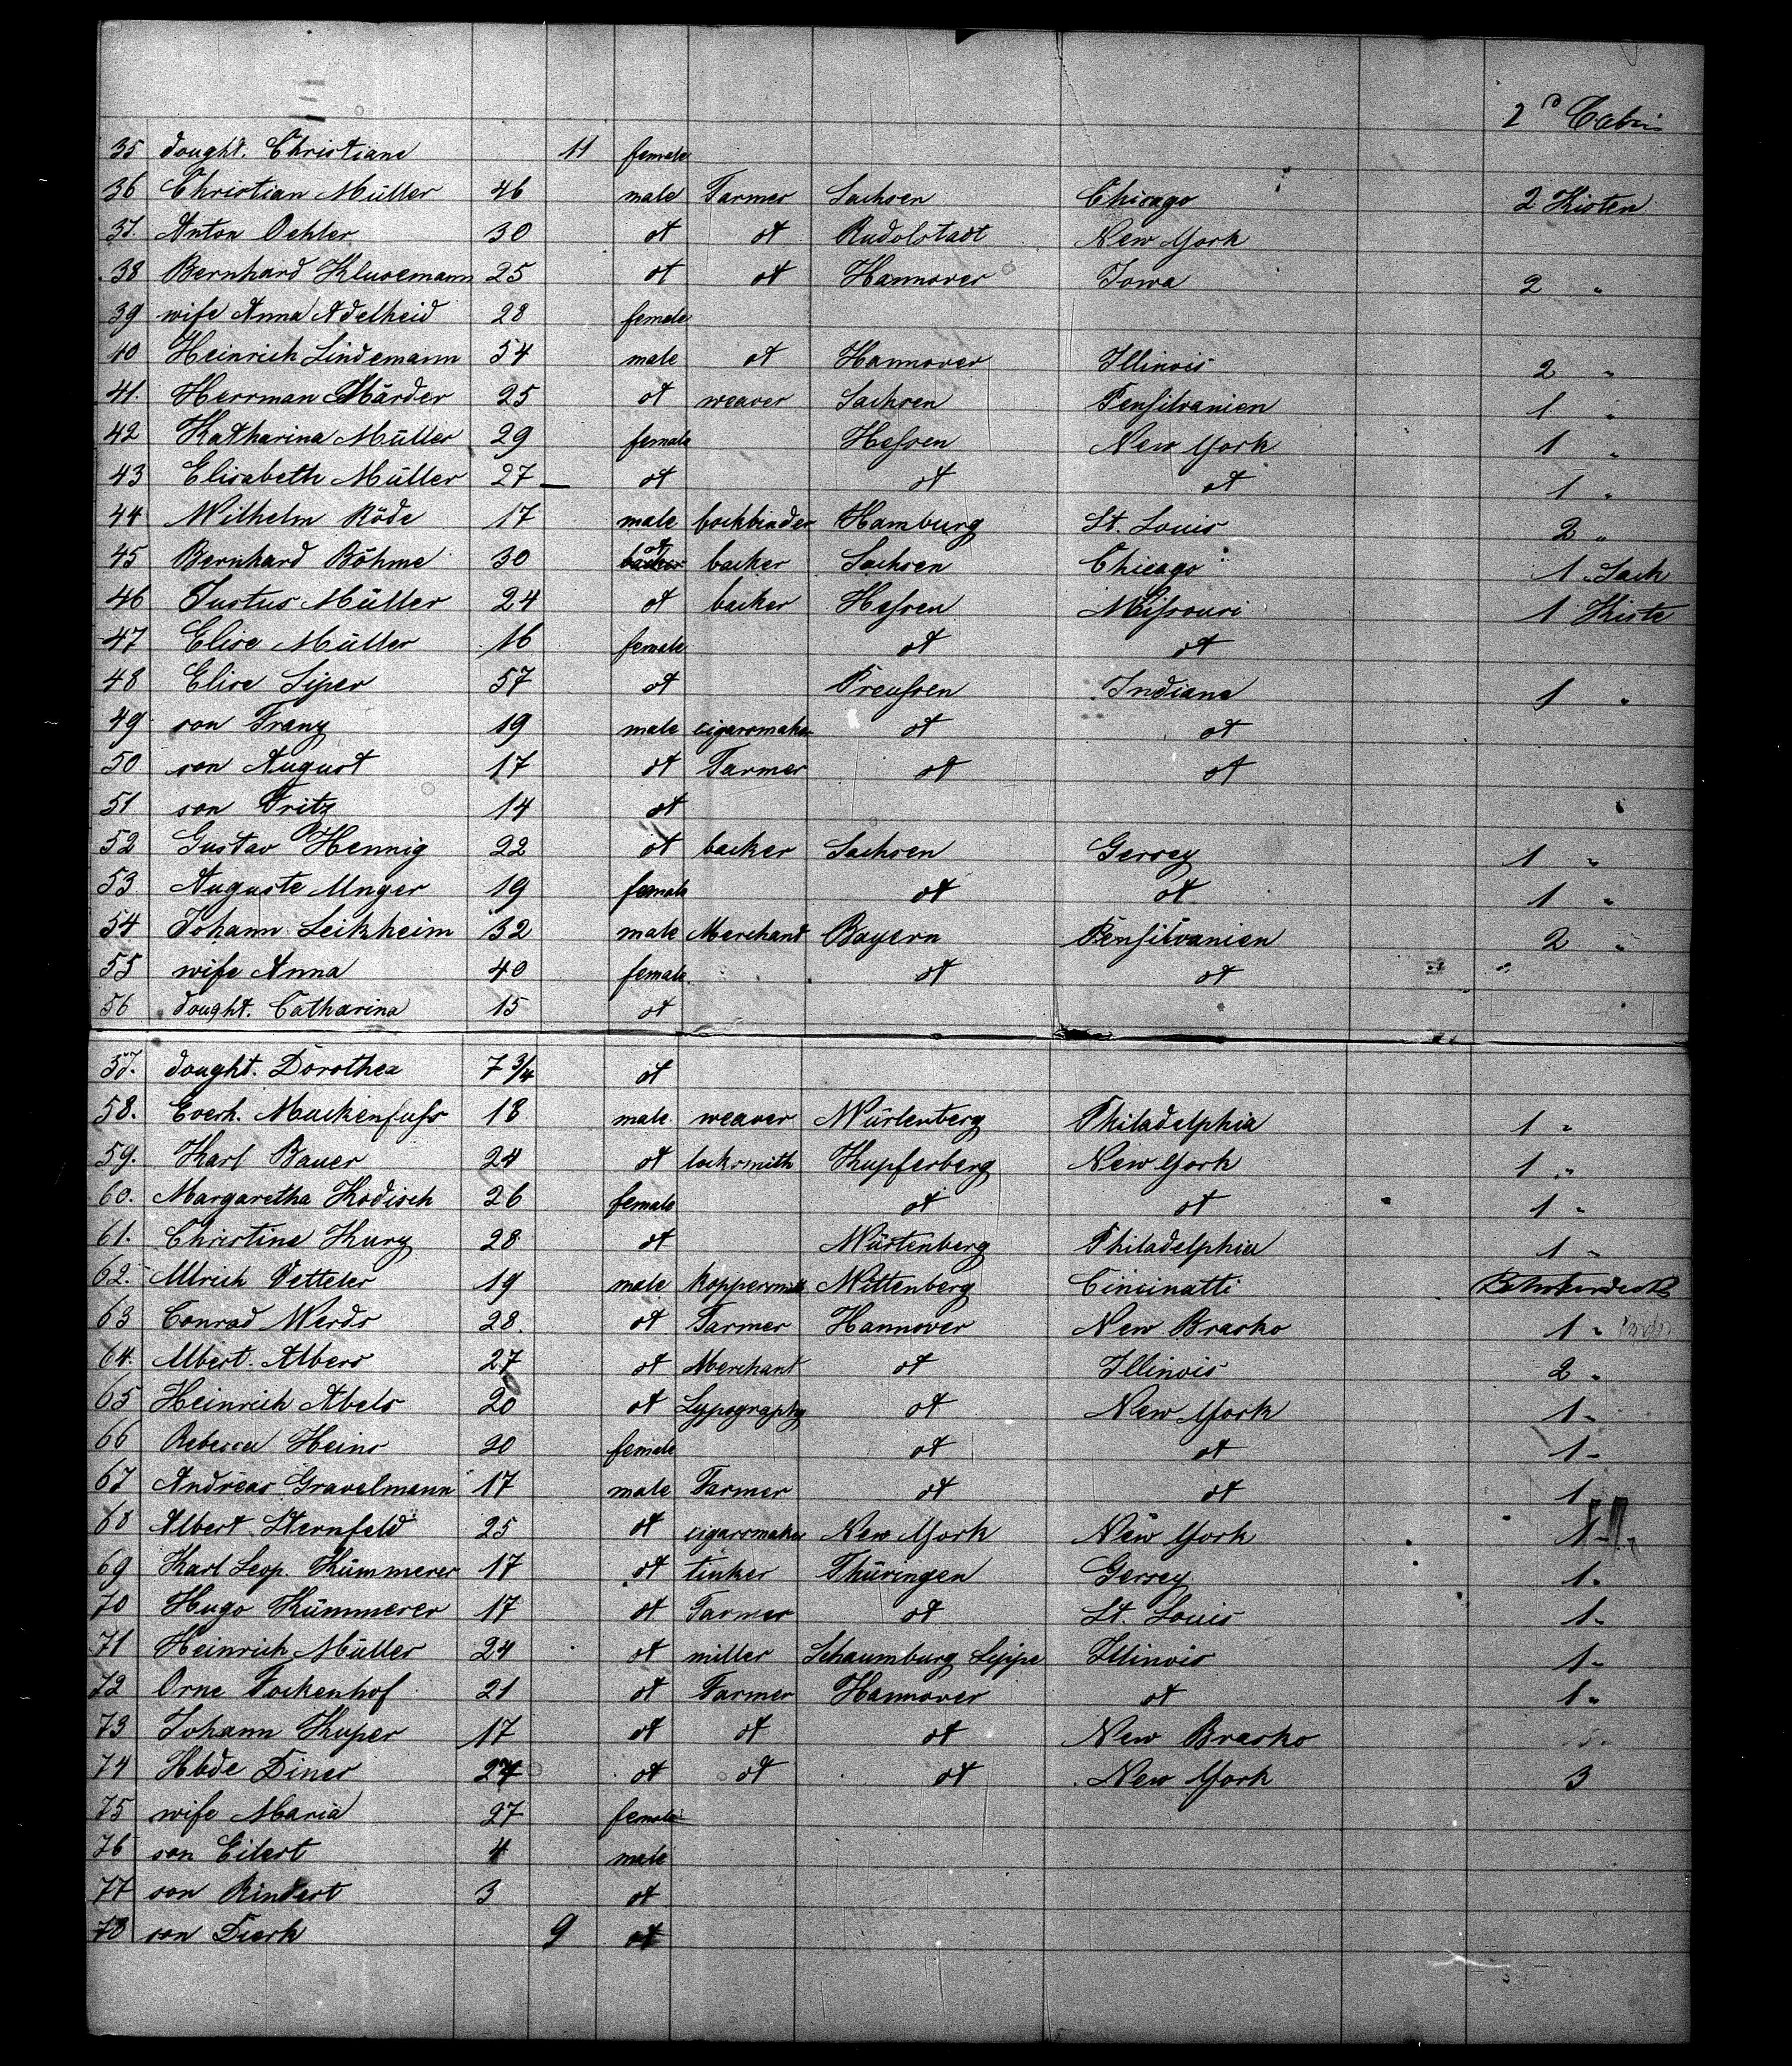 2d Cabin
35 dought. Christiane 11 female
36 Christian Müller 46 male Farmer Sachsen Chicago 2 Kisten
37. Anton Oehler 30 ot ot Rudolstadt New York
38 Bernhard Klusemann 25 ot ot Hannover Iowa 2 "
39 wife Anna Adelheid 28 female
40 Heinrich Lindemann 54 male ot Hannover Illinois 2 "
41. Herrman Märder 25 ot weaver Sachsen Pensilvanien 1 "
42 Katharina Müller 29 female Hessen New York 1 "
43 Elisabeth Müller 27 ot ot ot 1 "
44 Wilhelm Röde 17 male bockbinder Hamburg St. Louis 2 "
45 Bernhard Böhme 30 ot backer Sachsen Chicago 1 Sack
46 Justus Müller 24 ot backer Hessen Missouri 1 Kiste
47 Elise Müller 16 female ot ot
48 Elise Siper 57 ot Preussen Indiana 1 "
49 son Franz 19 male cigarsmaker ot ot
50 son August 17 ot Farmer ot ot
51 son Fritz 14 ot
52 Gustav Hennig 22 ot backer Sachsen Gersey 1 "
53 Auguste Unger 19 female ot ot 1 "
54 Johann Leikheim 32 male Merchand Bayern Pensilvanien 2 "
55 wife Anna 40 female ot ot
56 dought. Catharina 15 ot
57. dought. Dorothea 7 3/4 ot
58. Everh. Muckenfuss 18 male weaver Würtenberg Philadelphia 1 "
59. Karl Bauer 24 ot locksmith Kupferberg New York 1 "
60. Margaretha Kodisch 26 female ot ot 1 "
61. Christine Kurz 28 ot Würtenberg Philadelphia 1 "
62. Ulrich Vetteler 19 male koppersmith Wittenberg Cincinatti
63 Conrad Werds 28 ot Farmer Hannover New Brasko 1 "
64. Albert Albers 27 ot Merchant ot Illinois 2 "
65 Heinrich Abels 20 ot Lypography ot New York 1 "
66 Rebecca Heins 20 female ot ot 1 "
67 Andreas Gravelmann 17 male Farmer ot ot 1
68 Albert Sternfeld 25 ot cigarsmaker New York New York 1 "
69 Karl Leop. Kümmerer 17 ot tinker Thüringen Gersey 1 "
70 Hugo Kümmerer 17 ot Farmer ot St. Louis 1 "
71 Heinrich Müller 24 ot miller Schaumburg Lippe Illinois 1 "
72 Orne Fockenhof 21 ot Farmer Hannover ot 1 "
73 Johann Kuper 17 ot ot ot New Brasko
74 Hbde Diner 27 ot ot ot New York 3
75 wife Maria 27 female
76 son Eilert 4 male
77 son Rindert 3 ot
78 son Dierk 9 ot